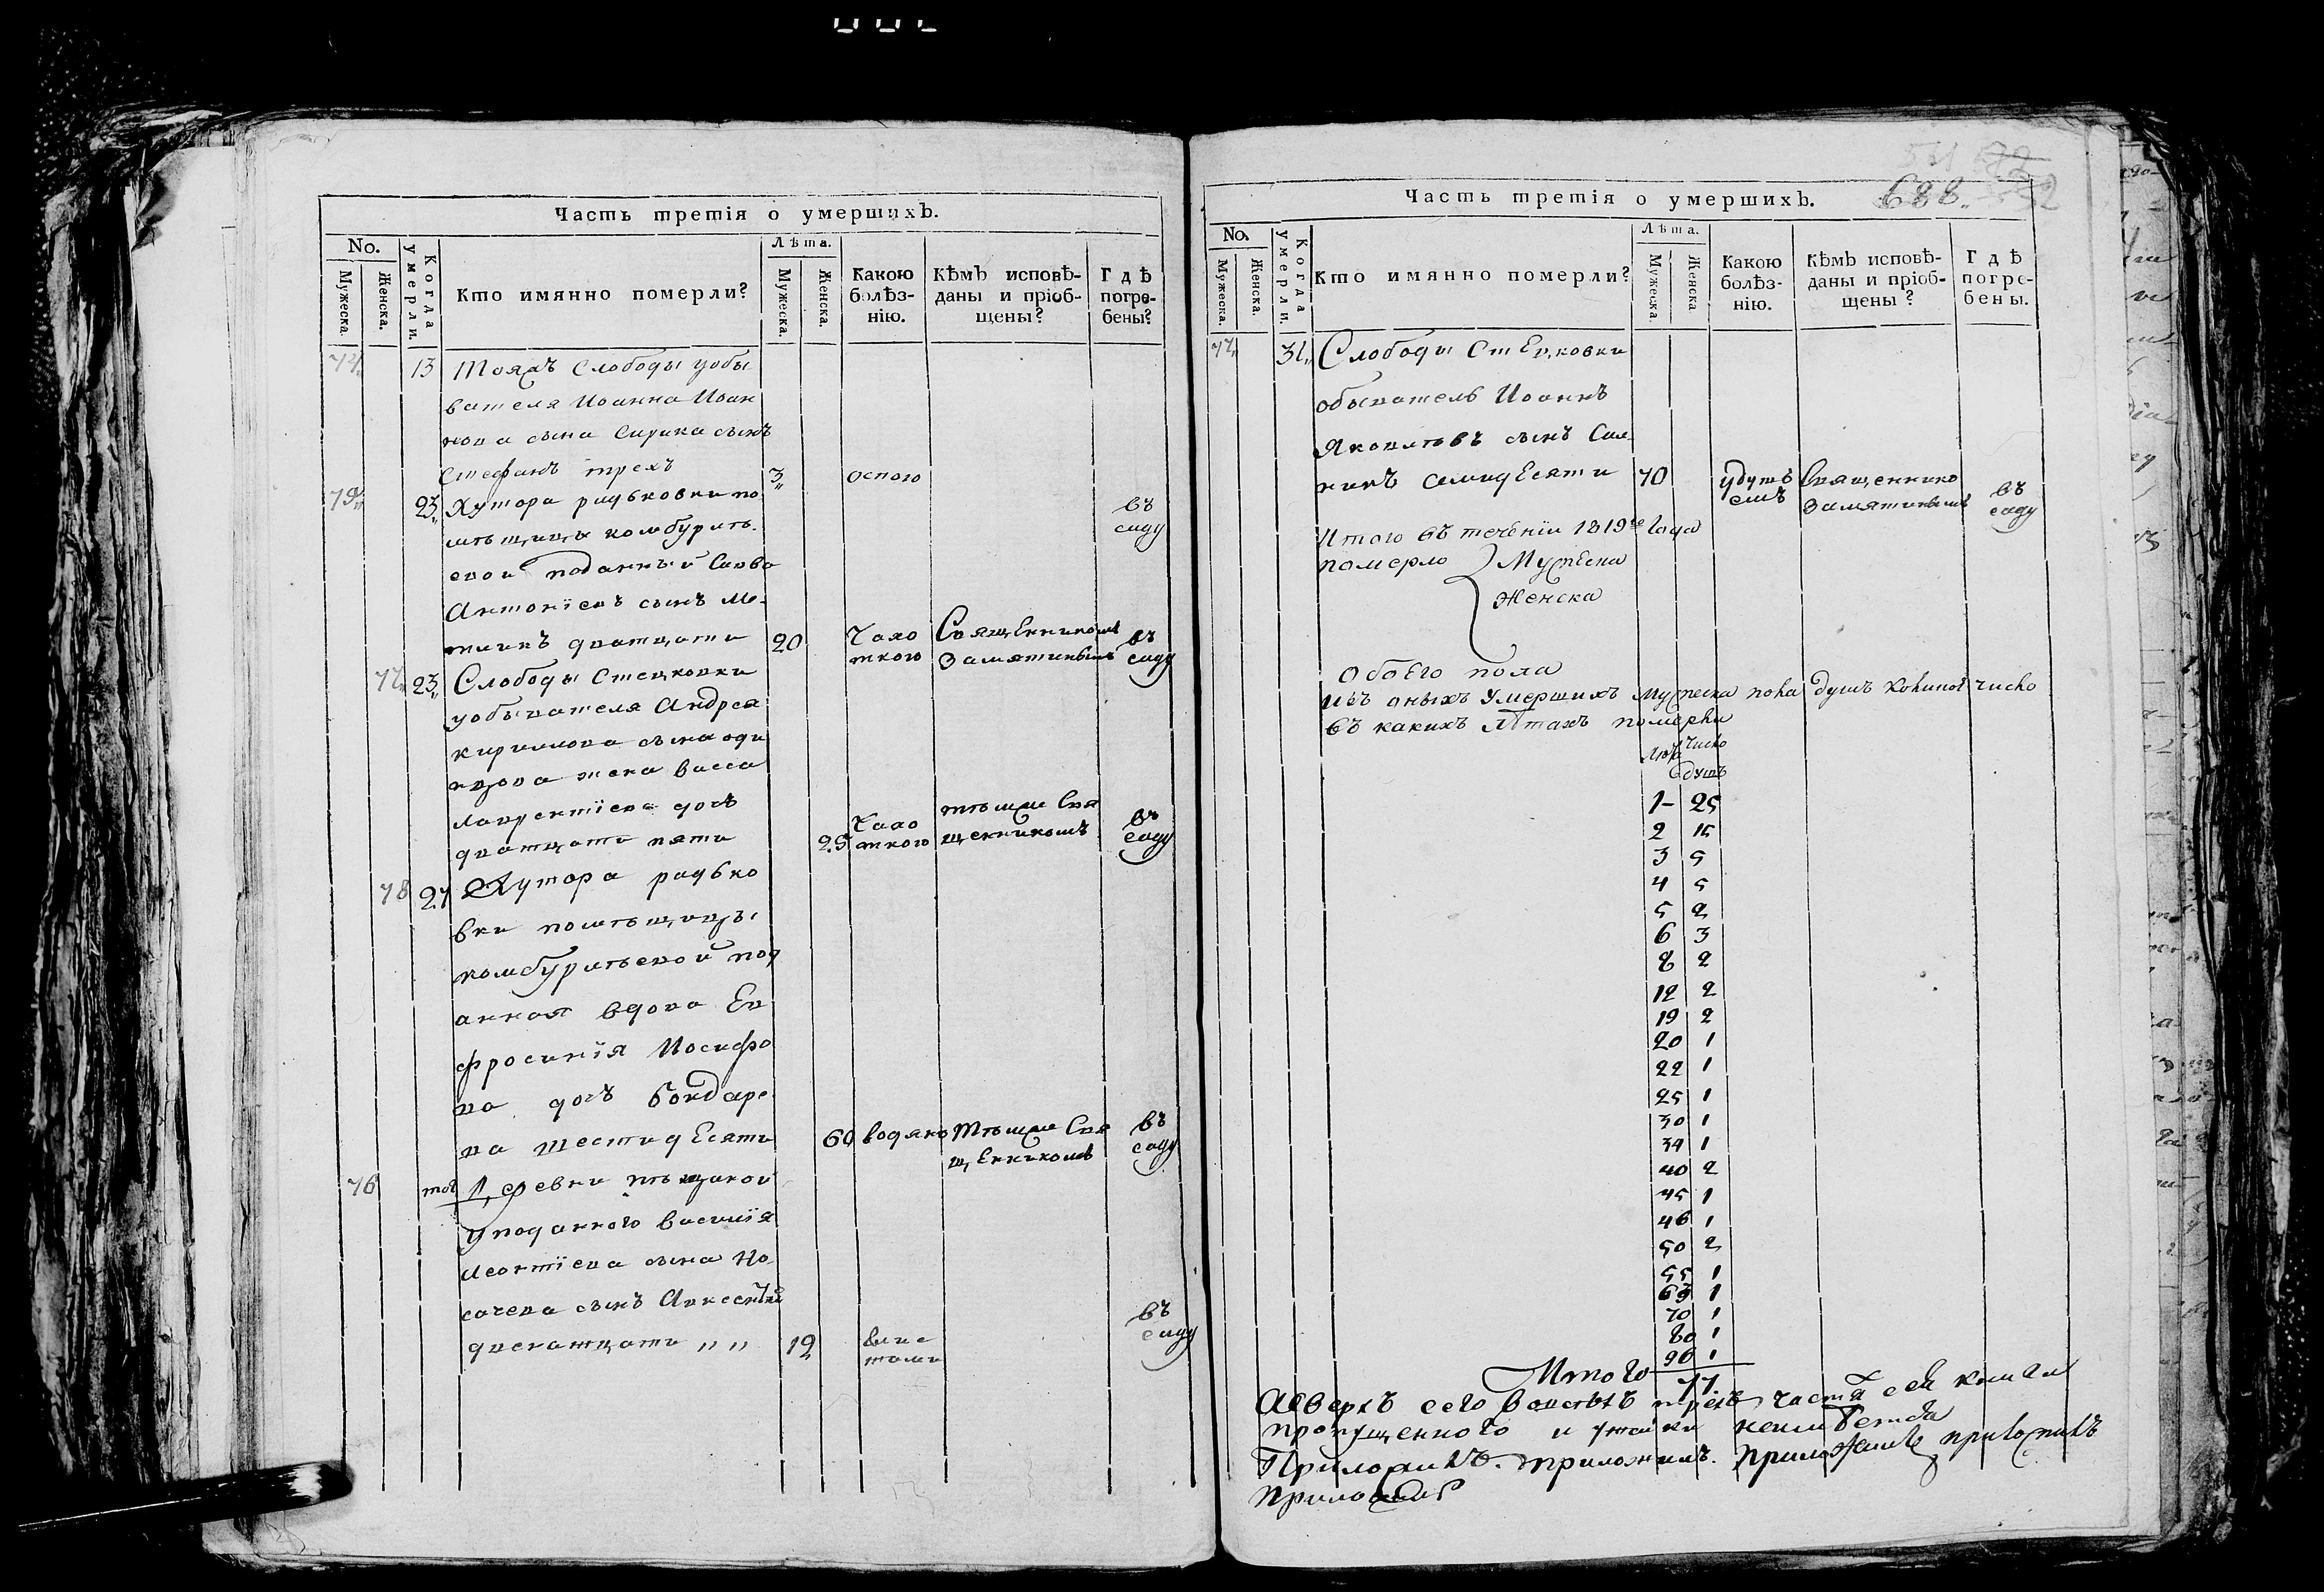 Часть третія о умершихъ.
No.
Мужеска.
Женска.
Когда умерли.
Кто имянно померли?
Лѣта.
Мужеска.
Женска.
Какою болѣз-
нію.
Кѣмъ исповѣ-
даны и пріоб-
щены?
Гдѣ
погре-
бены?
74 13 Тояжъ Слободы уобы
вателя Иоанна Иоан
нова сына Сирика сынъ
Стефанъ трехъ 3 оспою
въ
саду
75 23 Хутора радьковки по
мѣщицы комбурлѣ-
евои подданный Савва
Антонїевъ сынъ
дватцати 20 Чахо
ткою
Священникомъ
Замятинымъ
въ
саду
77 23 Слободы Стецковки
уобывателя Андрея
кирилова сына оди
нцова жена васса
лаврентїева дочь
дватцати пяти 25 Чахо
ткою
тѣмже Свя
щенникомъ
въ
саду
78 27 Хутора радько
вки помѣщицы
комбурлѣевой под
анная вдова Ев
фросинїя Иосифо
ва дочь бондаре
ва шестидЕсяти 60 водяно Тѣмже Свя
щЕнникомъ
въ
саду
76 той
уподанного василїя
Леонтїева сына Но
сачева сынъ Авксентїй
двенатцати „ „ 12
въ
саду
Часть третія о умершихъ.
688.
No.
Мужеска.
Женска.
Когда умерли.
Кто имянно померли?
Лѣта.
Мужеска.
Женска
Какою
болѣз-
нію.
Кѣмъ исповѣ-
даны и пріоб-
щены?
Гдѣ
погре-
бены.
77 31 Слободы СтЕцковки
обыватель Иоаннъ
Яковлѣвъ сынъ Сал-
никъ семидЕсяти 70 удуш
емъ
Священнико
Замятинымъ
въ
саду
Итого въ теченїи 1819го года
померло Мужеска
Женска
обоЕго пола
изъ оныхъ умершихъ мужеска пола душъ коликое число
въ какихъ лѣтахъ померли
лѣта число
душъ
1 – 25
2 15
3 5
4 5
5 2
6 3
8 2
12 2
19 2
20 1
22 1
25 1
30 1
34 1
40 2
45 1
46 1
50 2
55 1
63 1
70 1
80 1
90 1
Итого 77.
Асверхъ сего вовсѣхъ трехъ частя сей книги
пропущенного и утайки неимѣетца